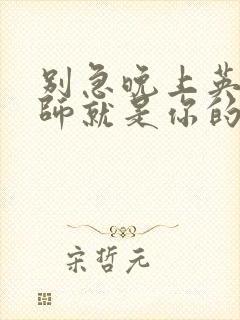 别急晚上英
师就是你的
宋哲元